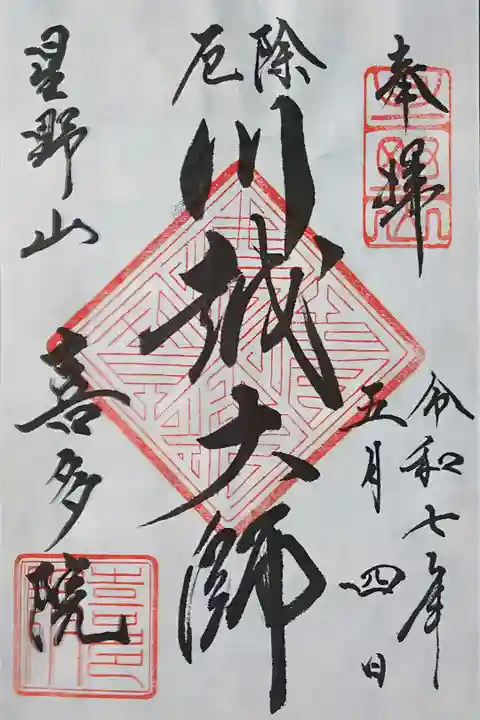 奉拝
令和七年
五月四日
厄除
川越大師
星野山
喜多院